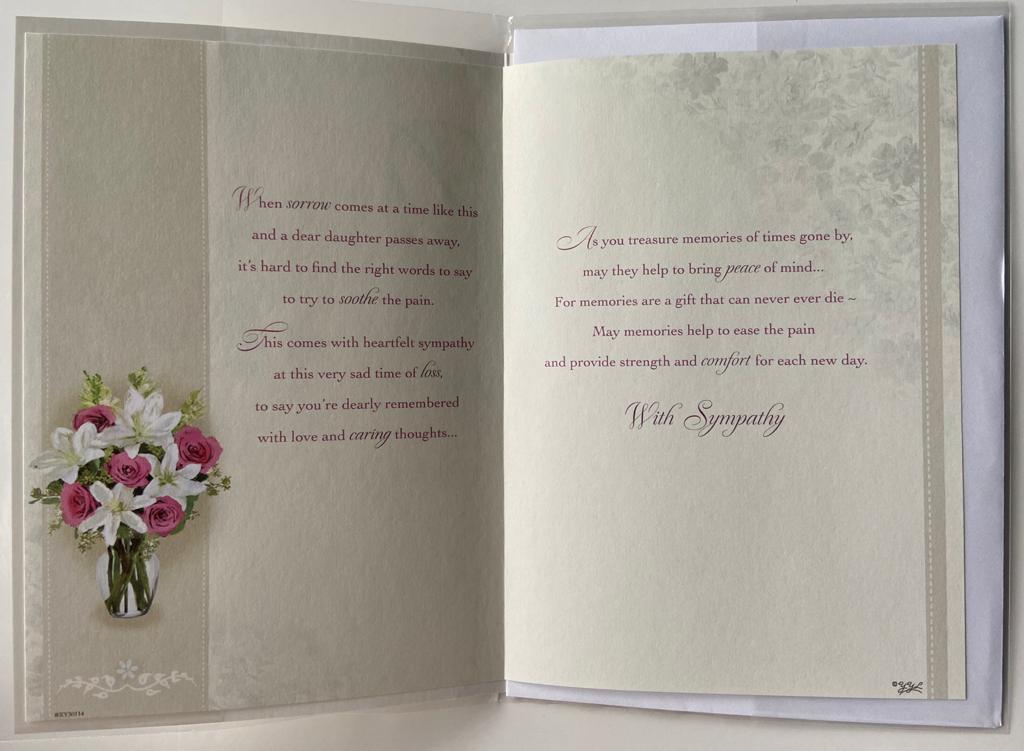 When sorrow comes at a time like this
and a dear daughter passes away,
it's hard to find the right words to say
to try to soothe the pain.
This comes with heartfelt sympathy
at this very sad time of loss,
to say you're dearly remembered
with love and caring thoughts...
As you treasure memories of times gone by,
may they help to bring peace of mind...
For memories are a gift that can never ever die ~
May memories help to ease the pain
and provide strength and comfort for each new day.
With Sympathy